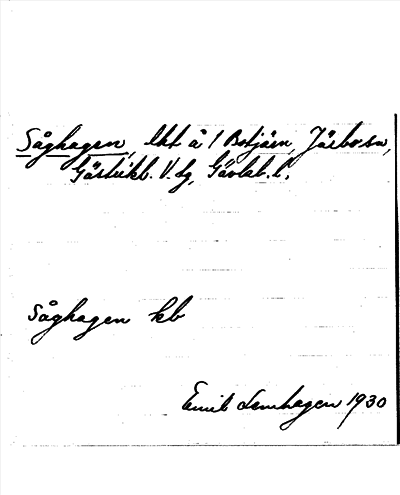 Såghagen, lht å 1 Botjärn, Järbo sn,
Gästrikl. V. dg, Gävleb. l.
Såghagen kb
Emil Lemhagen 1930